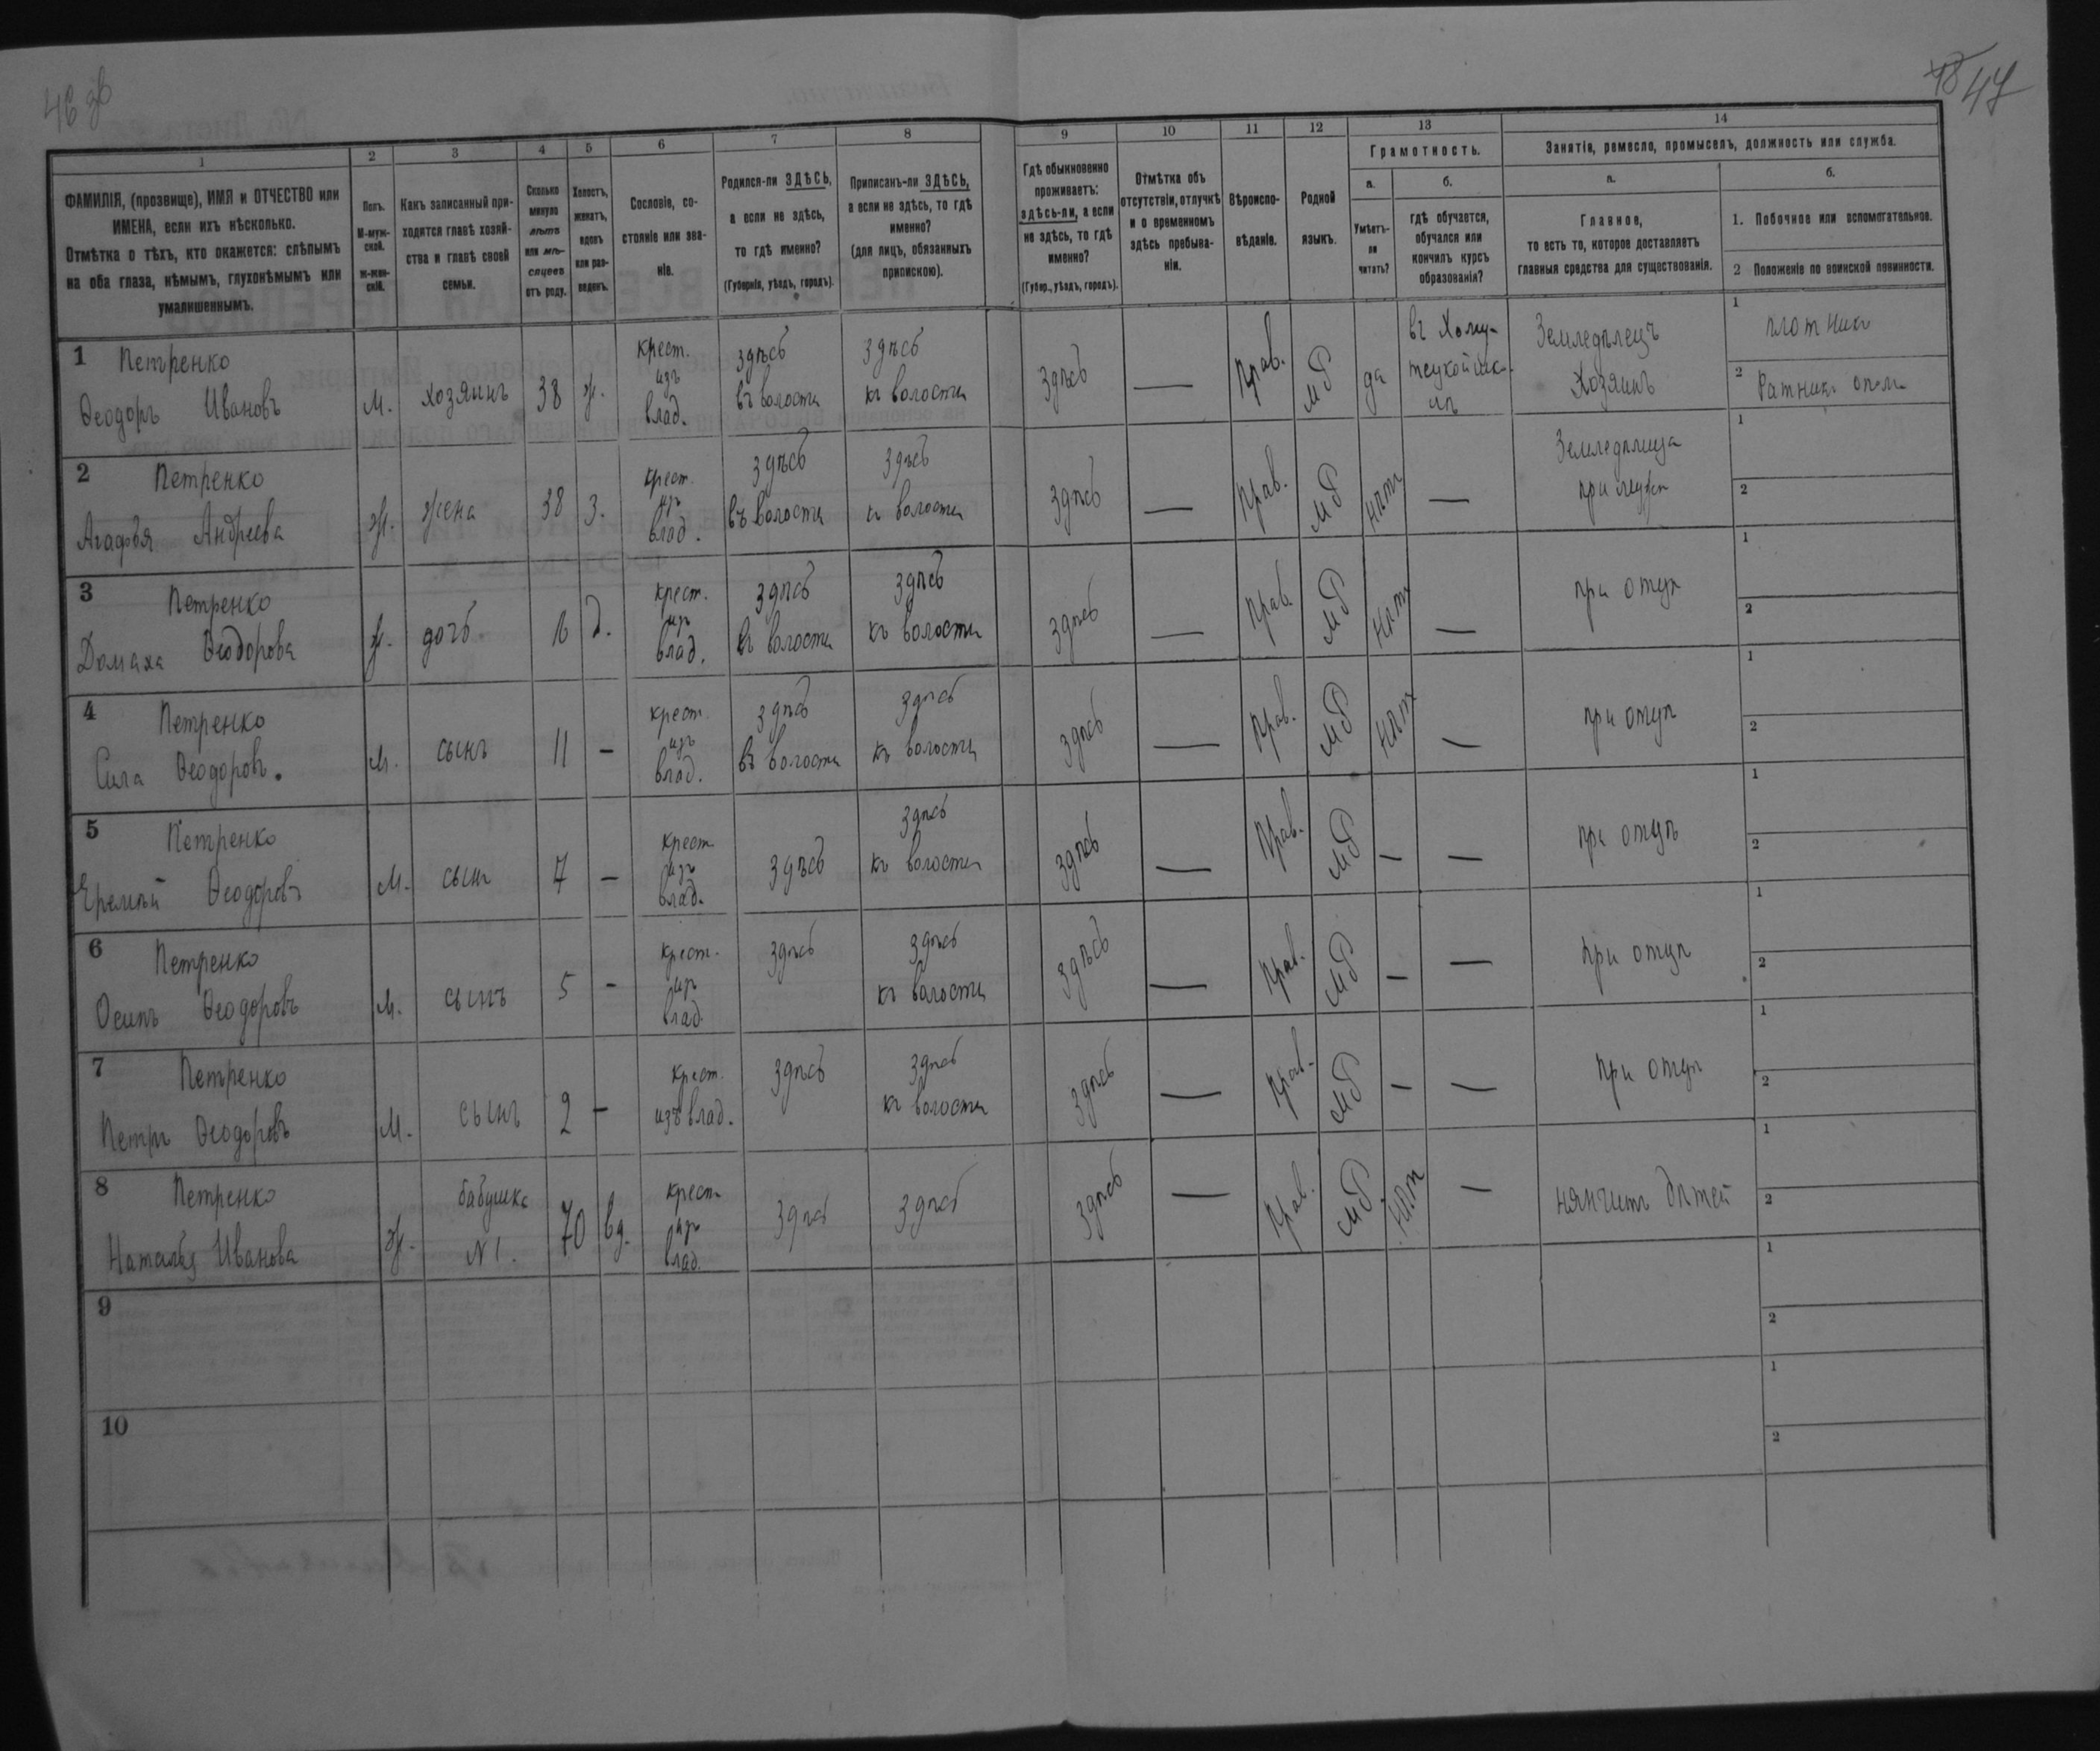 46 зв
48 47
1
2
3
4
5
6
7
8
9
10
11
12
13
14
ФАМИЛІЯ, (прозвище), ИМЯ и ОТЧЕСТВО или
ИМЕНА, если ихъ нѣсколько.
Отмѣтка о тѣхъ, кто окажется: слѣпымъ
на оба глаза, нѣмымъ, глухонѣмымъ или
умалишеннымъ.
Полъ.
М-муж-
ской.
ж-жен-
скій.
Какъ записанный при-
ходится главѣ хозяй-
ства и главѣ своей
семьи.
Сколько
минуло
лѣтъ
или мѣ-
сяцевъ
отъ роду.
Холостъ,
женатъ,
вдовъ
или раз-
веденъ.
Сословіе, со-
стояніе или зва-
ніе.
Родился-ли ЗДѢСЬ,
а если не здѣсь,
то гдѣ именно?
(Губернія, уѣздъ, городъ).
Приписанъ-ли ЗДѢСЬ,
а если не здѣсь, то гдѣ
именно?
(для лицъ, обязанныхъ
припискою).
Гдѣ обыкновенно
проживаетъ:
здѣсь-ли, а если
не здѣсь, то гдѣ
именно?
(Губер., уѣздъ, городъ).
Отмѣтка объ
отсутствіи, отлучкѣ
и о временномъ
здѣсь пребыва-
ніи.
Вѣроиспо-
вѣданіе.
Родной
языкъ.
Грамотность.
а.
Умѣетъ-
ли
читать?
б.
гдѣ обучается,
обучался или
кончилъ курсъ
образованія?
Занятія, ремесло, промыселъ, должность или служба.
а.
Главное,
то есть то, которое доставляетъ
главныя средства для существованія.
б.
1. Побочное или вспомогательное.
2 Положеніе по воинской повинности.
1 Петренко
Ѳеодоръ Ивановъ
М.
хозяинъ
38
ж.
крест.
изъ
влад.
здѣсь
въ волости
здѣсь
къ волости
здѣсь
—
Прав.
МР
да
въ Хому-
тецкой шко-
лѣ
Земледѣлецъ
Хозяинъ
1 плотникъ
2 Ратник. опол.
2 Петренко
Агафья Андреева
ж.
жена
38
з.
крест.
изъ
влад.
здѣсь
въ волости
здѣсь
къ волости
здѣсь
—
Прав.
МР
нѣтъ
—
Земледѣлица
при мужѣ
1
2
3 Петренко
Домаха Ѳеодорова
ж.
дочь.
16
д.
крест.
изъ
влад.
здѣсь
въ волости
здѣсь
къ волости
здѣсь
—
Прав.
МР
нѣтъ
—
при отцѣ
1
2
4 Петренко
Сила Ѳеодоровъ.
М.
сынъ
11
-
крест.
изъ
влад.
здѣсь
въ волости
здѣсь
къ волости
здѣсь
—
Прав.
МР
нѣтъ
—
при отцѣ
1
2
5 Петренко
Еремѣй Ѳеодоровъ
М.
сынъ
7
-
крест.
изъ
влад.
здѣсь
здѣсь
къ волости
здѣсь
—
Прав.
МР
-
—
при отцѣ
1
2
6 Петренко
Осипъ Ѳеодоровъ
М.
сынъ
5
-
крест.
изъ
влад.
здѣсь
здѣсь
къ волости
здѣсь
—
Прав.
МР
-
—
при отцѣ
1
2
7 Петренко
Петръ Ѳеодоровъ
М.
сынъ
2
-
крест.
изъ влад.
здѣсь
здѣсь
къ волости
здѣсь
—
Прав.
МР
-
—
при отцѣ
1
2
8 Петренко
Наталья Иванова
ж.
бабушка
N 1.
70
вд.
крест.
изъ
влад.
здѣсь
здѣсь
здѣсь
—
Прав.
МР
нѣтъ
—
нянчитъ дѣтей
1
2
9
1
2
10
1
2